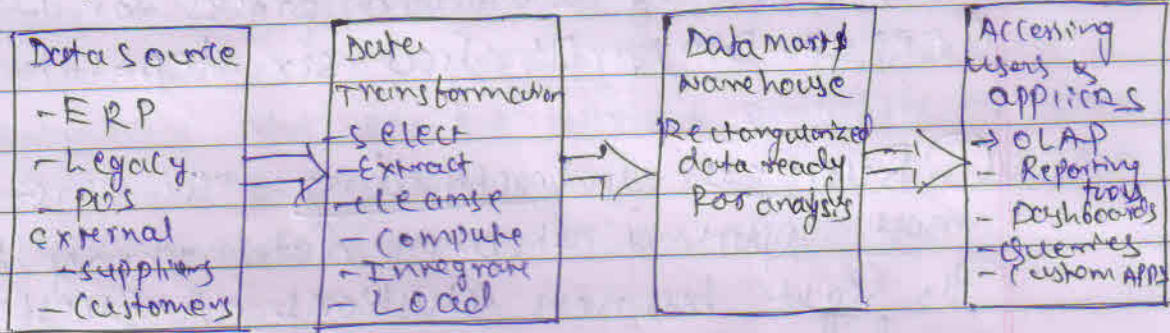 Data Source
- ERP
- Legacy
- POS
external
- suppliers
- Customers
Date
Transformation
- select
- Extract
- cleanse
- Compute
- Integrate
Load
Data Marts
warehouse
Rectangularized
data ready
For anaysis
Accessing
users &
applicas
→ OLAP
- Reporting
tools
- Dashboards
- Queries
- Custom APPS